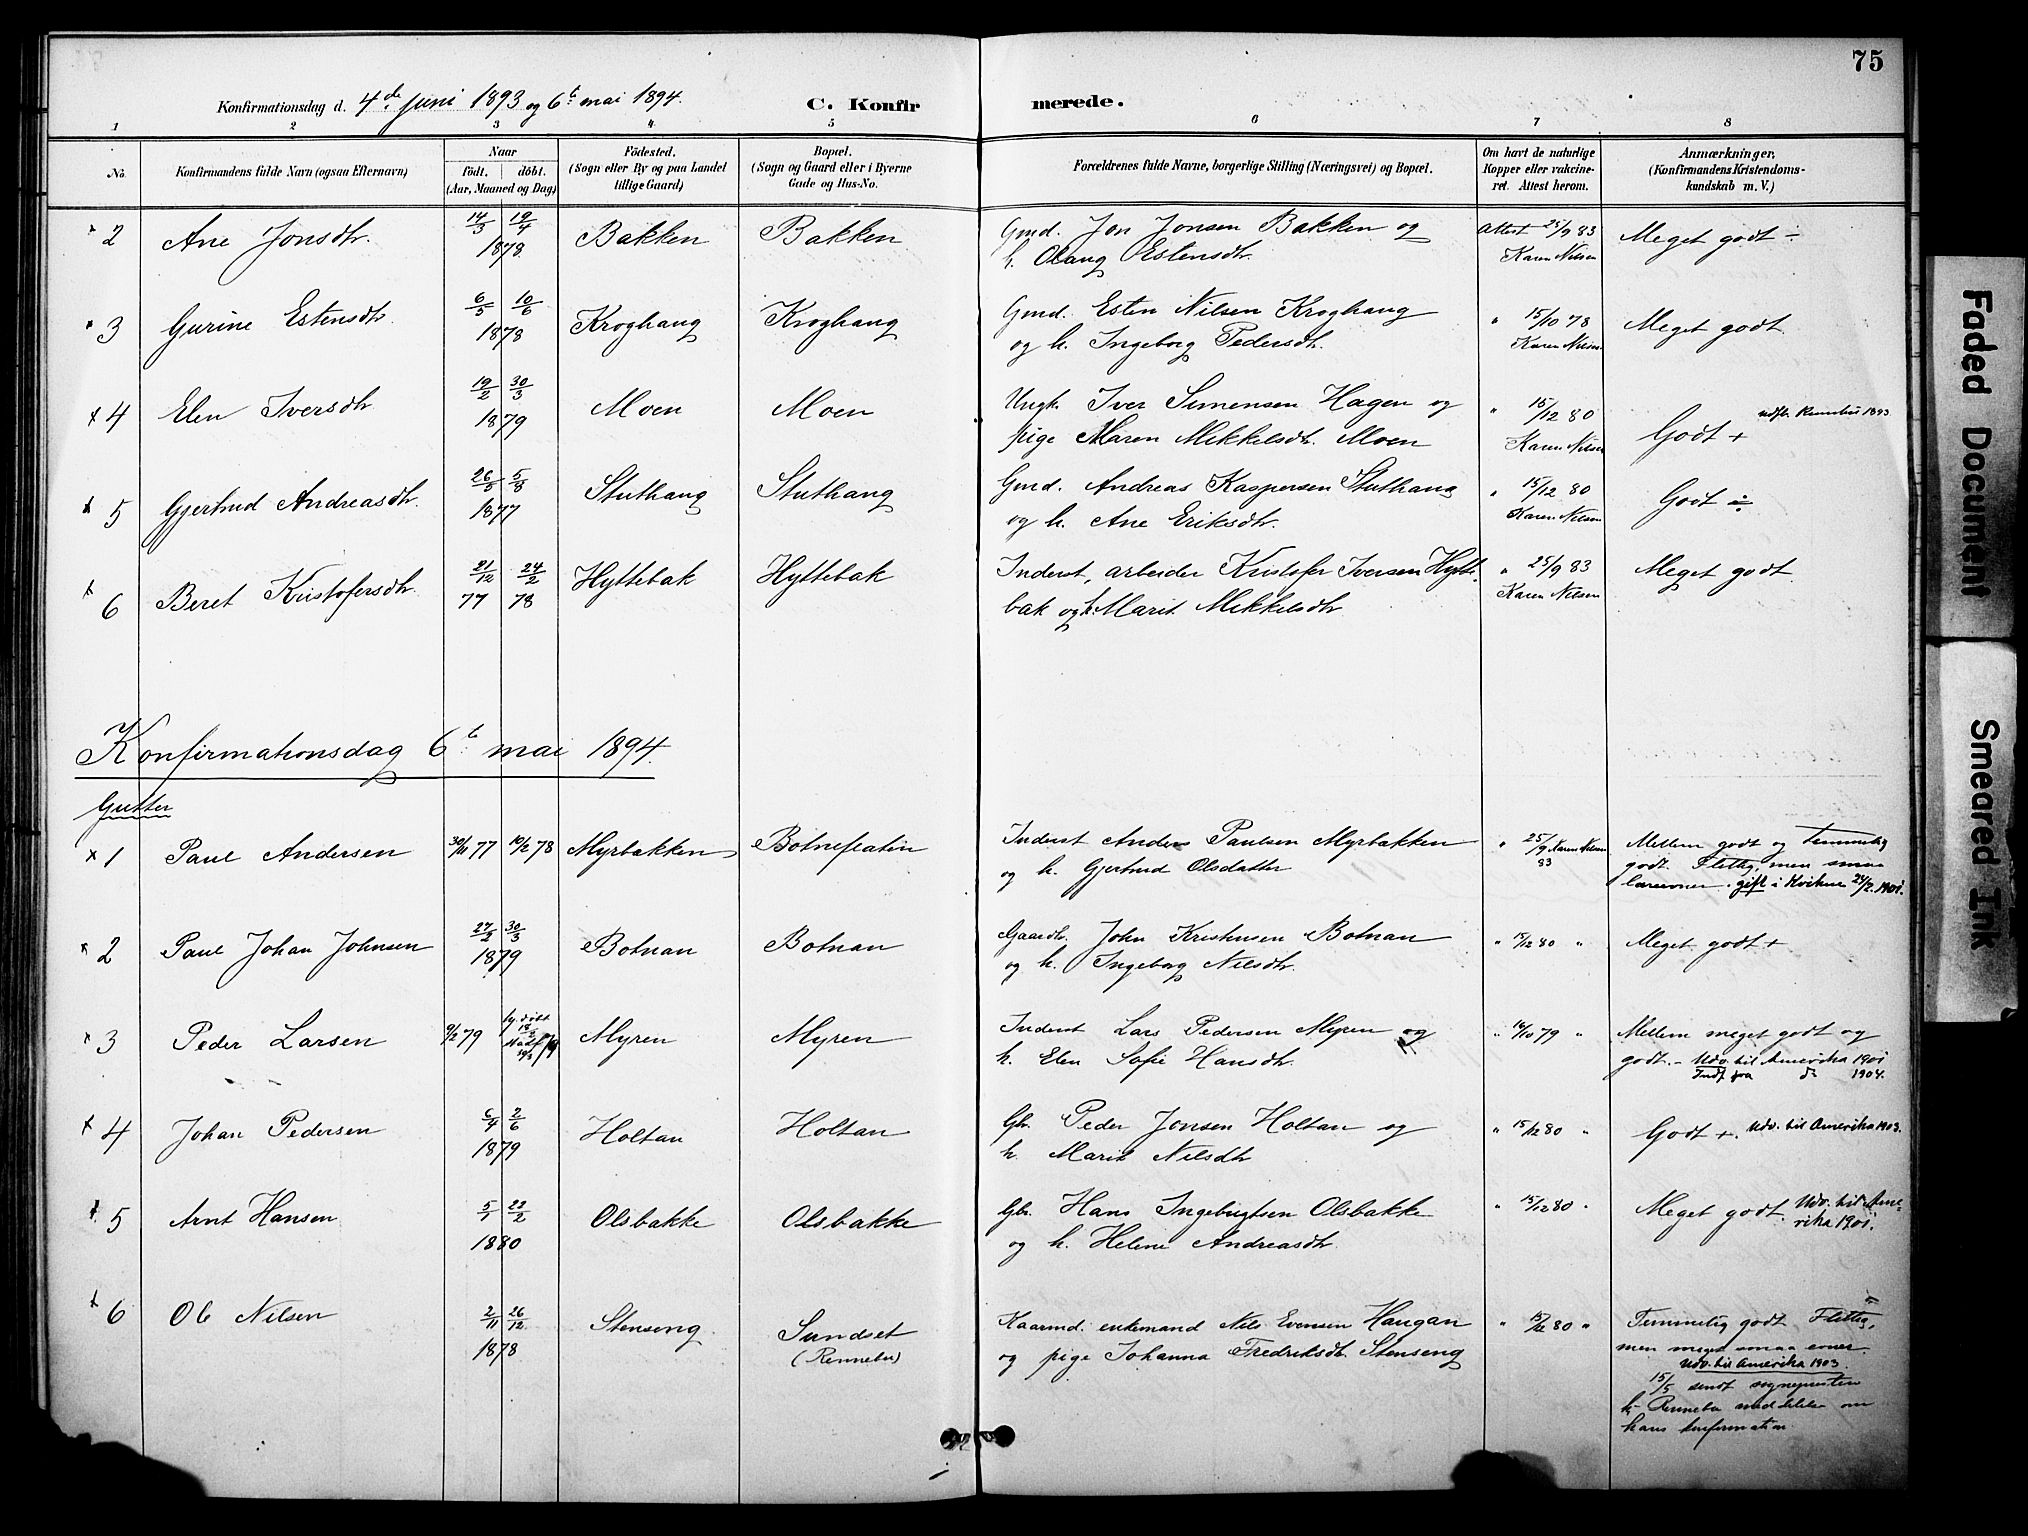 75
Konfirmationsdag d. 4de Juni 1893 og 6te mai 1894. C. Konfirmerede.
1 2 3 4. 5 6 7 8
No. Konfirmandens fulde Navn (ogsaa Efternavn) Naar födt. döbt. (Aar, Maaned og Dag) Födested. (Sogn eller By og paa Landet tillige Gaard) Bopæl. (Sogn og Gaard eller i Byerne Gade og Hus-No. Forældrenes fulde Navne, borgerlige Stilling (Næringsvei) og Bopæl. Om havt de naturlige Kopper eller vakcineret. Attest herom. Anmærkninger, (Konfirmandens Kristendomskundskab m. V.)
2 Ane Jonsdtr. 14/3 19/4 1878 Bakken Bakken Gmd. Jon Jonsen Bakken og Attest 25/9 83 Meget godt ÷
h. Olaug Estensdtr. Karen Nilsen
3 Gurine Estensdtr. 6/5 10/6 1878 Kroghaug Kroghaug Gmd. Esten Nilsen Kroghaug " 15/10 78 Meget godt
og h. Ingeborg Pedersdtr. Karen Nilsen
x 4 Elen Iversdtr 19/2 30/3 1879 Moen Moen Ungk. Iver Simensen Hagen og " 15/12 80 Godt + udfl. Rennebu 1893
pige Maren Mikkelsdtr. Moen Karen Nilsen
x 5 Gjertrud Andreasdtr. 26/5 5/8 1877 Stuthaug Stuthaug Gmd. Andreas Kaspersen Stuthaug " 15/12 80 Godt ÷
og h. Ane Eriksdtr. Karen Nilsen
x 6 Beret Kristofersdtr. 21/12 77 24/2 78 Hyttebak Hyttebak Inderst, arbeider Kristofer Iversen Hytte- " 25/9 83 Meget godt
bak og h. Marit Mikkelsdtr Karen Nilsen
Konfirmationsdag 6te mai 1894.
Gutter
x 1 Paul Andersen 30/11 77 10/2 78 Myrbakken Inderst Anders Paulsen Myrbakken " 25/9 83 Karen Nilsen Mellem godt og temmelig
og h. Gjertrud Olsdatter godt. Flittig, men smaa
læreevner. gift i Kvikne 24/2. 1901.
x 2 Paul Johan Johnsen 27/2 30/3 1879 Botnan Botnan Gaardb. John Kristensen Botnan " 15/12 80 " Meget godt +
og h. Ingeborg Nilsdtr.
x 3 Peder Larsen 9/2 79 hj. döbt 18/2 Myren Myren Inderst Lars Pedersen Myren og " 16/10 79 " Mellem meget godt og
h. Elen Sofie Hansdtr. godt. - Udv. til Amerika 1901
Indf fra do 1904.
x 4 Johan Pedersen 6/4 2/6 1879 Holtan Holtan Gbr. Peder Jonsen Holtan og " 15/12 80 " Godt +. Udv. til Amerika 1903.
h. Marit Nilsdtr
5 Arnt Hansen 5/1 22/2 1880 Olsbakke Olsbakke Gbr. Hans Ingebrigtsen Olsbakke " 15/12 80 " Meget godt. Udv. til Ame-
og h. Helene Andreasdtr rika 1901.
x 6 Ole Nilsen 2/11 26/12 1878 Stenseng. Sundset Kaarmd. enkemand Nils Evensen Haugan " 15/12 80 " Temmelig godt Flittig,
(Rennebu) og pige Johanna Fredriksdtr. Stenseng men meget smaa evner.
Udv. til Amerika 1903.
15/5 sendt sognepresten
til Rennebu meddelelse om
hans konfirmation.
Faded Document
Smeared Ink